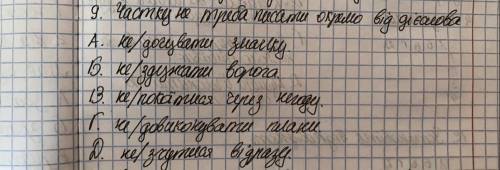 9. Частку не треба писати окремо від дієслова
А. не/досувати змашку
Б. не/здужати ворога.
В. не/покатися через негоду.
Г. не/довиконувати плани
Д. не/зчутися відразу.